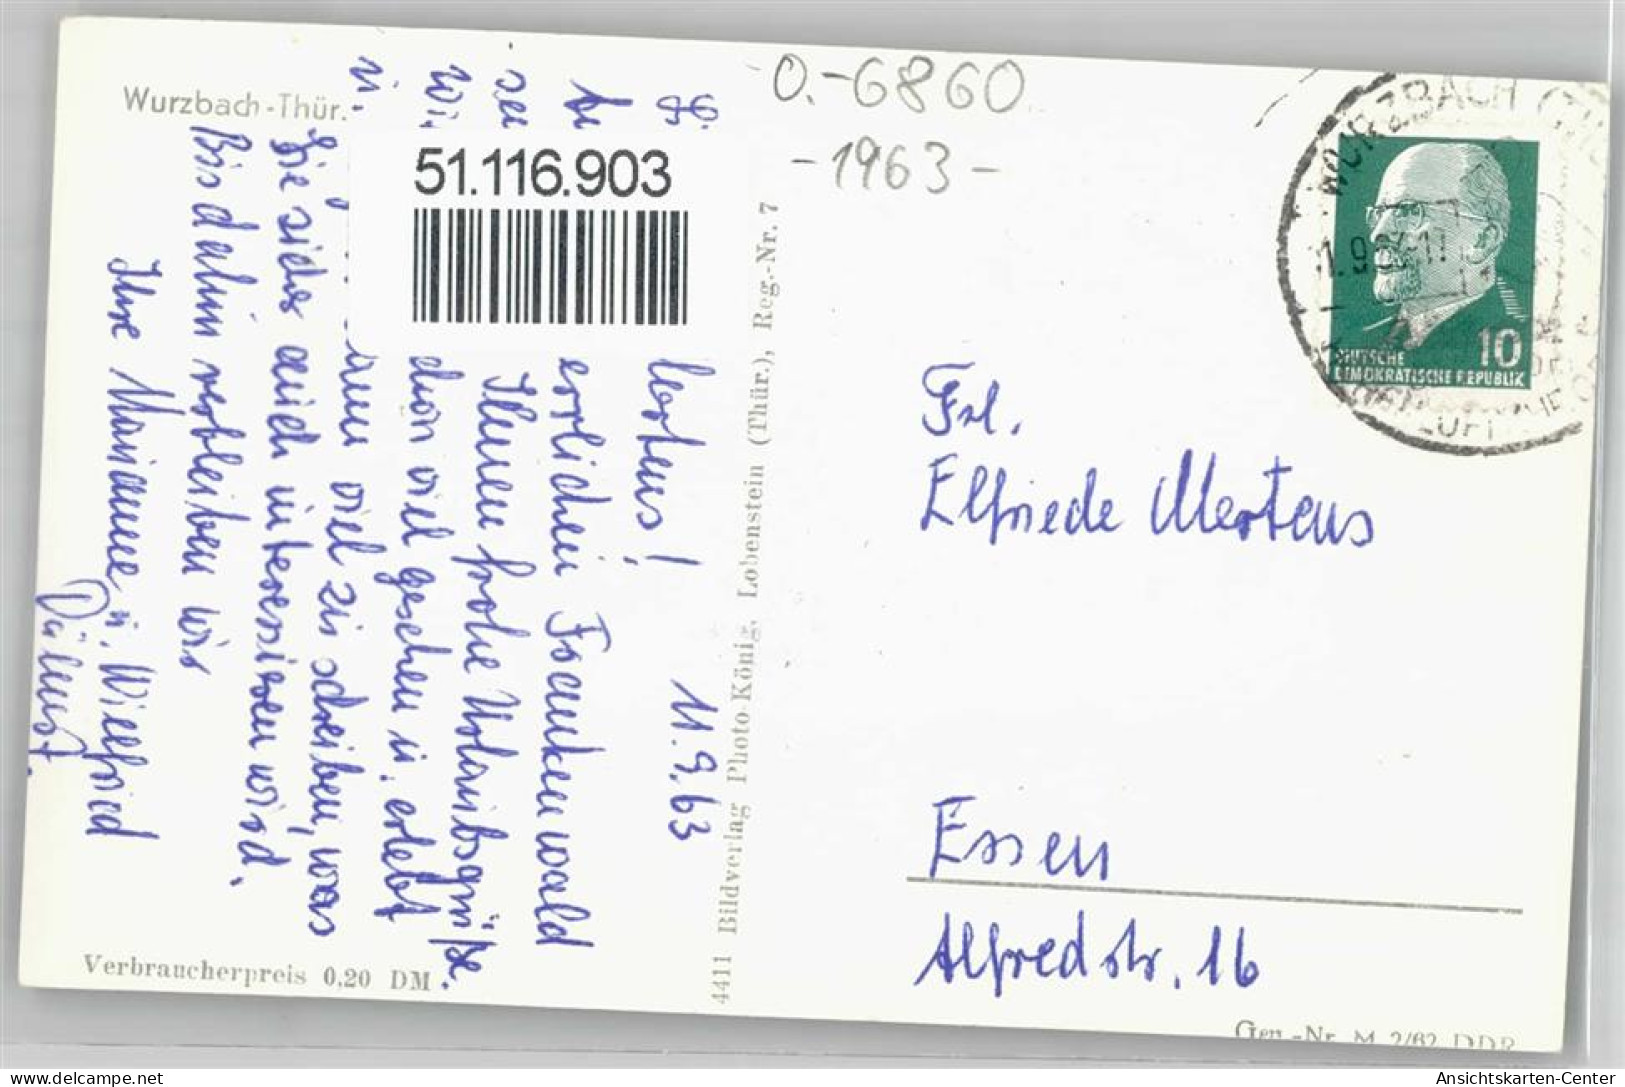 Wurzbach-Thür.
O.-6860
-1963-
51.116.903
WURZBACH (THÜR
10
DEUTSCHE
DEMOKRATISCHE REPUBLIK
11.9.63
L. Mertens!
errlichen Frankenwald
sen Ihnen frohe Urlaubsgrüße.
Wi. chon viel gesehen u. erlebt
u. viel zu schreiben, was
Sie sicher auch interessieren wird.
Bis dahin verbleiben wir
Ihre Marianne u. Wilfried
4411 Bildverlag Photo-König, Lobenstein (Thür.), Reg.-Nr. 7
Frl.
Elfriede Mertens
Essen
Alfredstr. 16
Verbraucherpreis 0,20 DM
Gen.-Nr. M 2/62 DDR
akpool.de
Ansichtskarten-Center